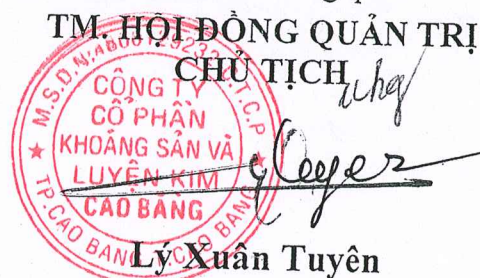 TM. HỘI ĐỒNG QUẢN TRỊ
CHỦ TỊCH
M.S.D.N:
C.T.C.P
CÔNG TY
CỔ PHẦN
KHOÁNG SẢN VÀ
LUYỆN KIM
CAO BẰNG
TP.CAO BẰNG
Lý Xuân Tuyên